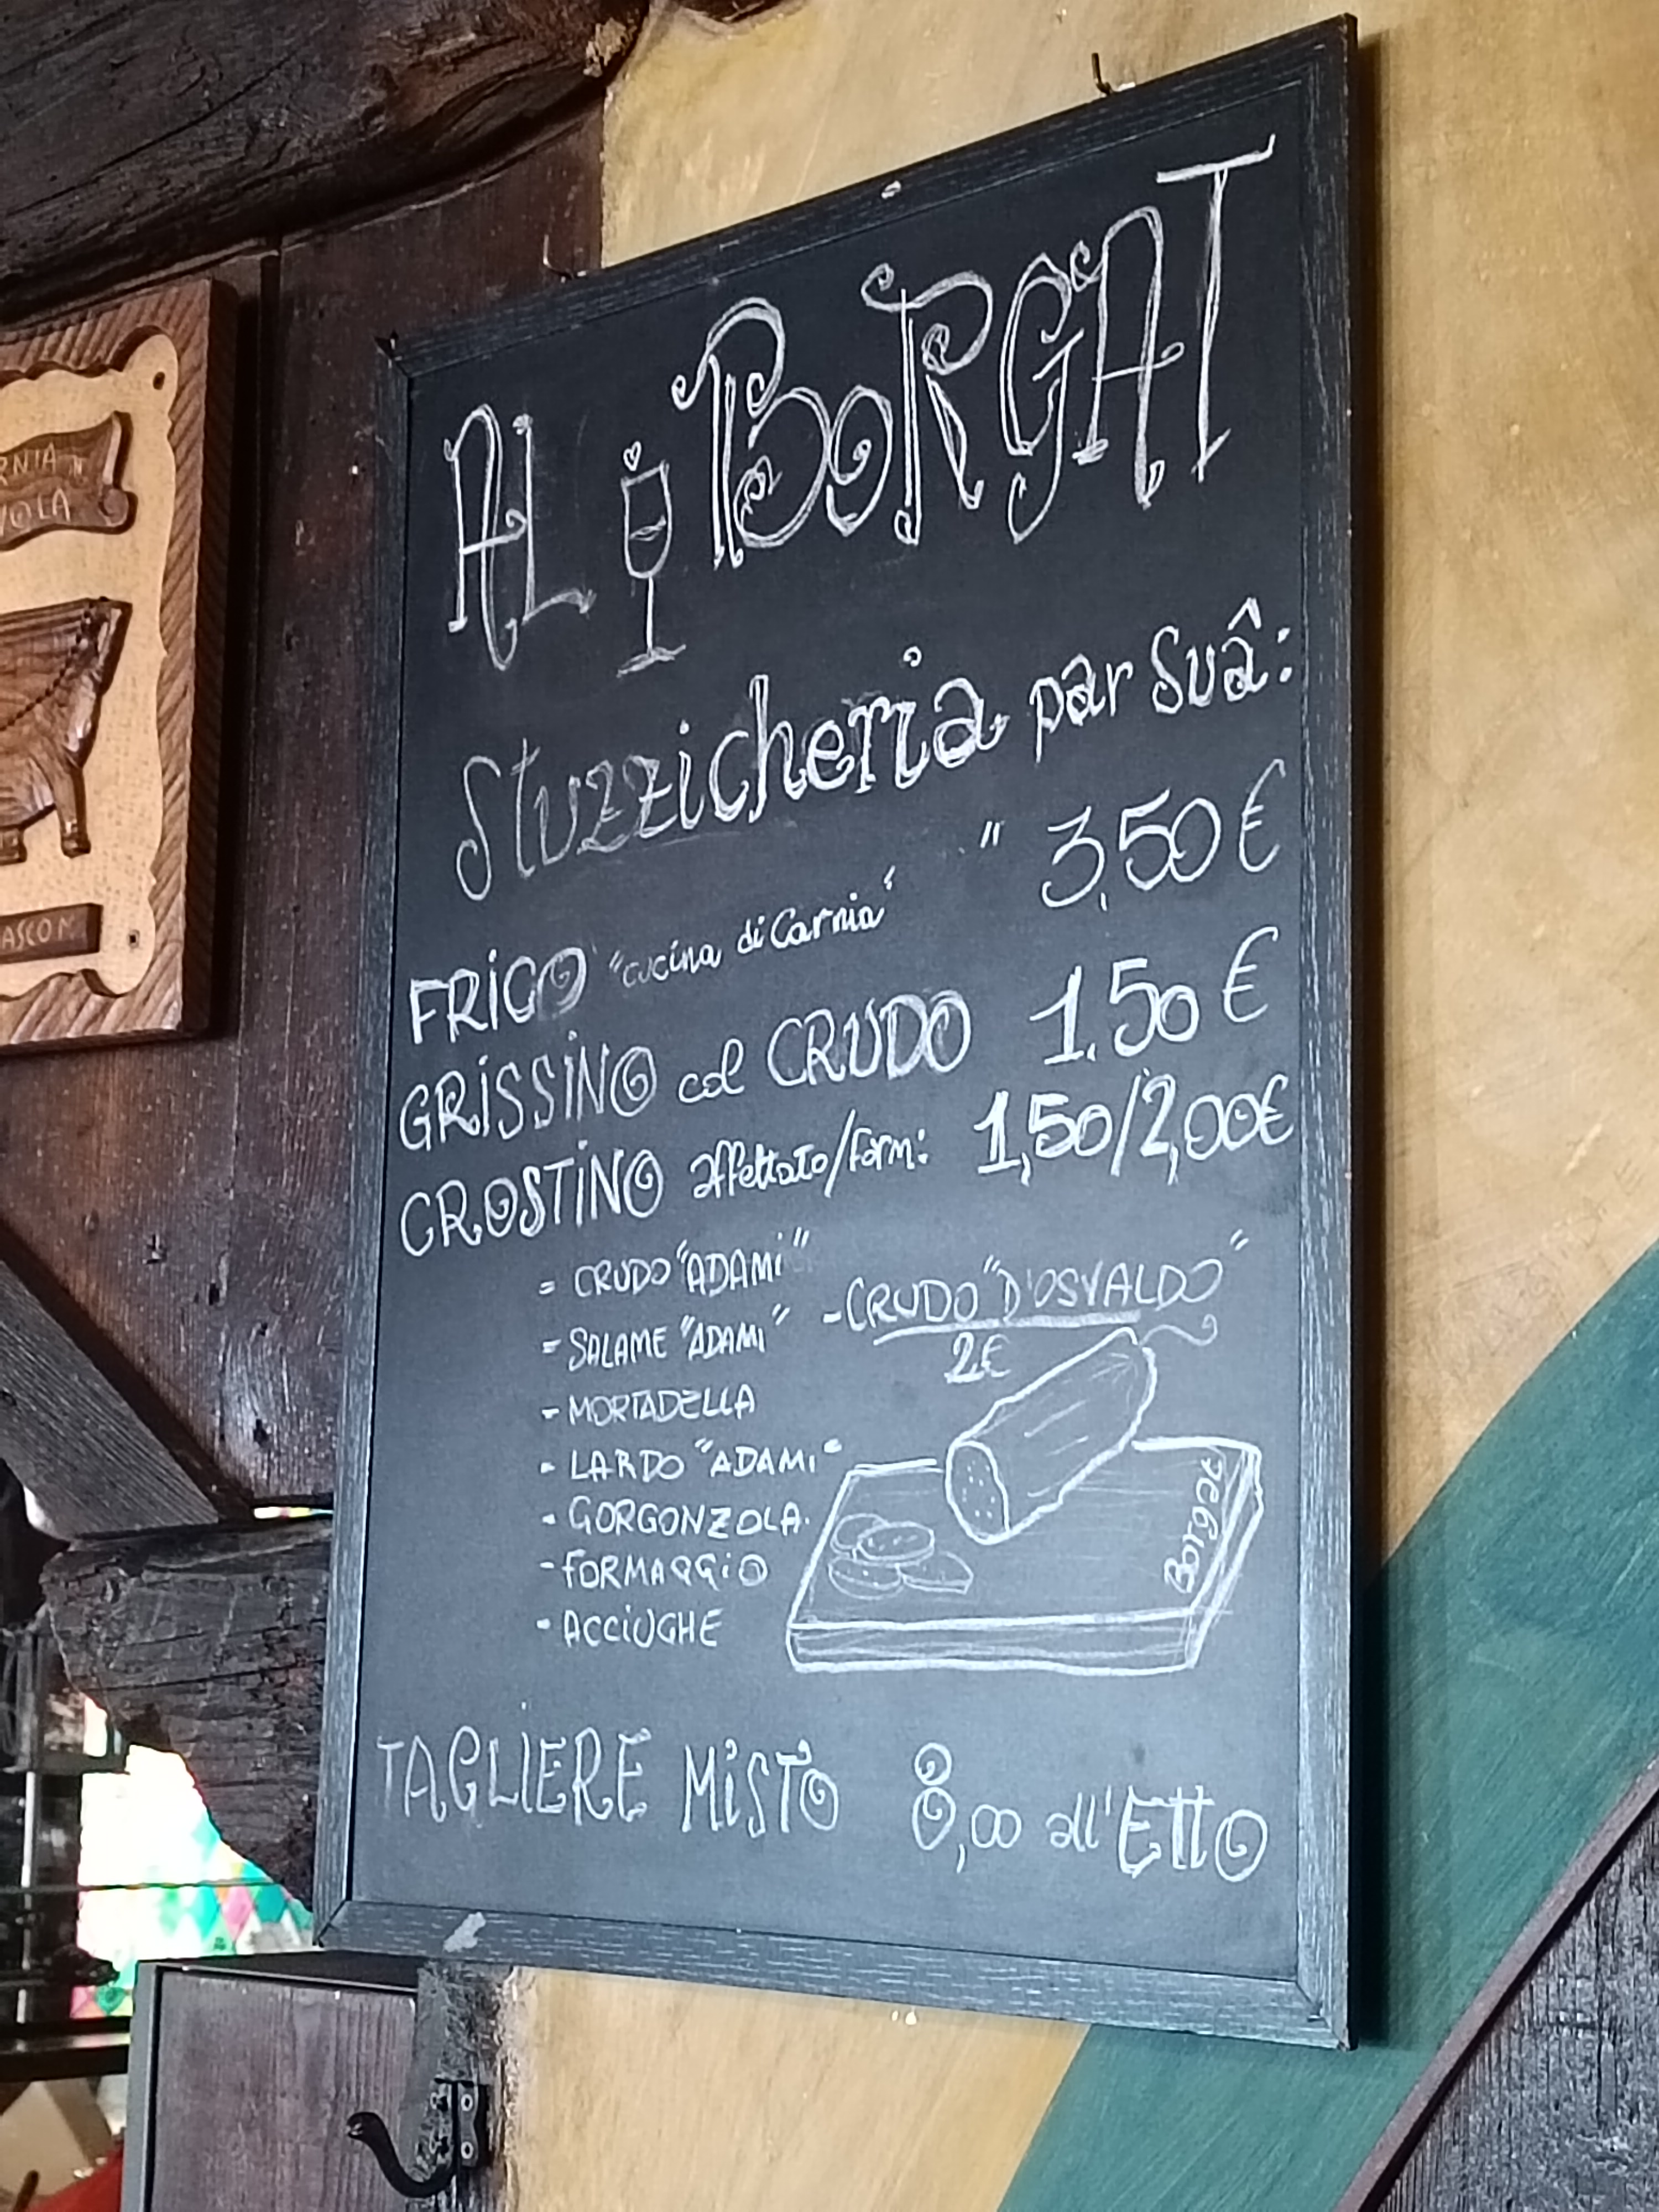 AL BORGAT
Stuzzicheria par Suâ:
FRICO "cucina di Carnia" " 3,50 €
GRISSINO col CRUDO 1.50 €
CROSTINO affettato/form: 1,50/2,00€
= CRUDO "ADAMI"
- CRUDO "D'OSVALDO"
2€
= SALAME "ADAMI"
- MORTADELLA
- LARDO "ADAMI"
- GORGONZOLA.
- FORMAGGIO
- ACCIUGHE
Borgat
TAGLIERE MISTO 8,00 all'ETTO
RNIA IN
VOLA
ASCOM